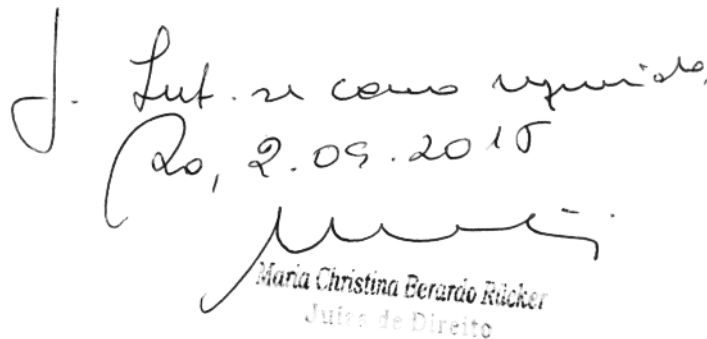 J. Int. se como requerido,
Rio, 2.09.2015
Maria Christina Berardo Rücker
Juíza de Direito